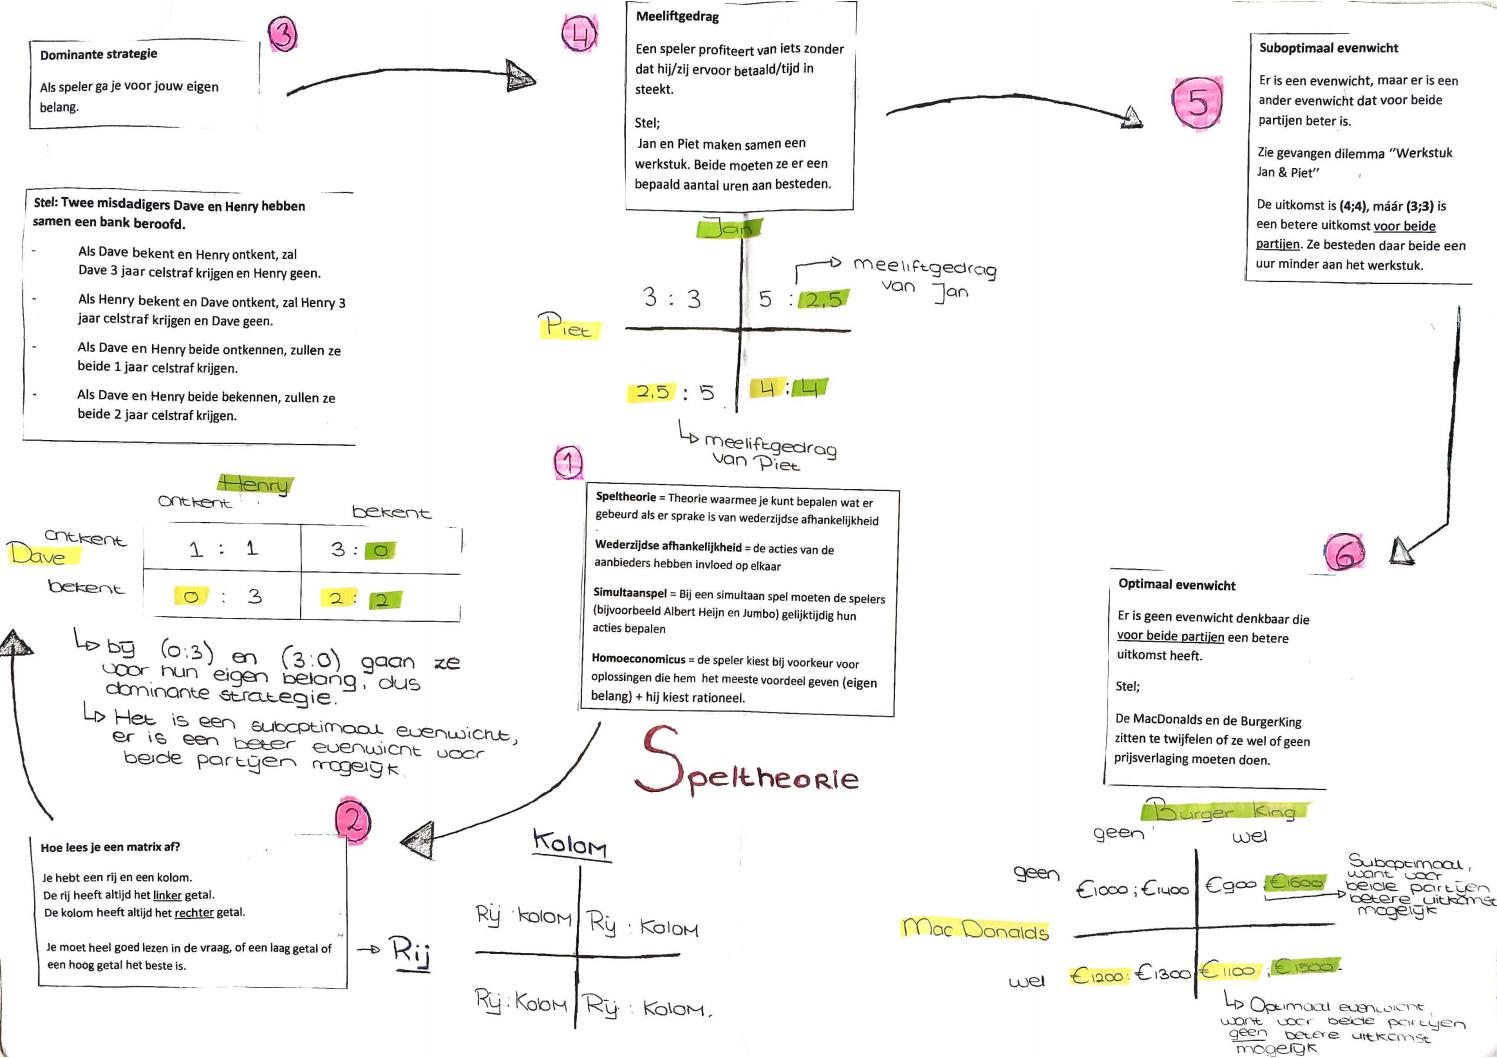 Speltheorie
1
Speltheorie = Theorie waarmee je kunt bepalen wat er
gebeurd als er sprake is van wederzijdse afhankelijkheid
Wederzijdse afhankelijkheid = de acties van de
aanbieders hebben invloed op elkaar
Simultaanspel = Bij een simultaan spel moeten de spelers
(bijvoorbeeld Albert Heijn en Jumbo) gelijktijdig hun
acties bepalen
Homoeconomicus = de speler kiest bij voorkeur voor
oplossingen die hem het meeste voordeel geven (eigen
belang) + hij kiest rationeel.
2
Hoe lees je een matrix af?
Je hebt een rij en een kolom.
De rij heeft altijd het linker getal.
De kolom heeft altijd het rechter getal.
Je moet heel goed lezen in de vraag, of een laag getal of
een hoog getal het beste is.
Kolom
Rij
Rij : Kolom Rij : Kolom
Rij : Kolom Rij : Kolom.
3
Dominante strategie
Als speler ga je voor jouw eigen
belang.
Stel: Twee misdadigers Dave en Henry hebben
samen een bank beroofd.
- Als Dave bekent en Henry ontkent, zal
Dave 3 jaar celstraf krijgen en Henry geen.
- Als Henry bekent en Dave ontkent, zal Henry 3
jaar celstraf krijgen en Dave geen.
- Als Dave en Henry beide ontkennen, zullen ze
beide 1 jaar celstraf krijgen.
- Als Dave en Henry beide bekennen, zullen ze
beide 2 jaar celstraf krijgen.
Henry
ontkent bekent
ontkent
Dave
bekent
1 : 1 3 : 0
0 : 3 2 : 2
bij (0:3) en (3:0) gaan ze
voor hun eigen belang, dus
dominante strategie.
Het is een suboptimaal evenwicht,
er is een beter evenwicht voor
beide partijen mogelijk.
4
Meeliftgedrag
Een speler profiteert van iets zonder
dat hij/zij ervoor betaald/tijd in
steekt.
Stel;
Jan en Piet maken samen een
werkstuk. Beide moeten ze er een
bepaald aantal uren aan besteden.
Jan
Piet
3 : 3 5 : 2,5
2,5 : 5 4 : 4
meeliftgedrag
van Jan
meeliftgedrag
van Piet
5
Suboptimaal evenwicht
Er is een evenwicht, maar er is een
ander evenwicht dat voor beide
partijen beter is.
Zie gevangen dilemma "Werkstuk
Jan & Piet"
De uitkomst is (4;4), máár (3;3) is
een betere uitkomst voor beide
partijen. Ze besteden daar beide een
uur minder aan het werkstuk.
6
Optimaal evenwicht
Er is geen evenwicht denkbaar die
voor beide partijen een betere
uitkomst heeft.
Stel;
De MacDonalds en de BurgerKing
zitten te twijfelen of ze wel of geen
prijsverlaging moeten doen.
Burger King
geen wel
geen
Mac Donalds
wel
€1000 ; €1400 €900 ; €1600
€1200 : €1300 €1100 ; €1500.
Suboptimaal,
want voor
beide partijen
betere uitkomst
mogelijk
Optimaal evenwicht,
want voor beide partijen
geen betere uitkomst
mogelijk